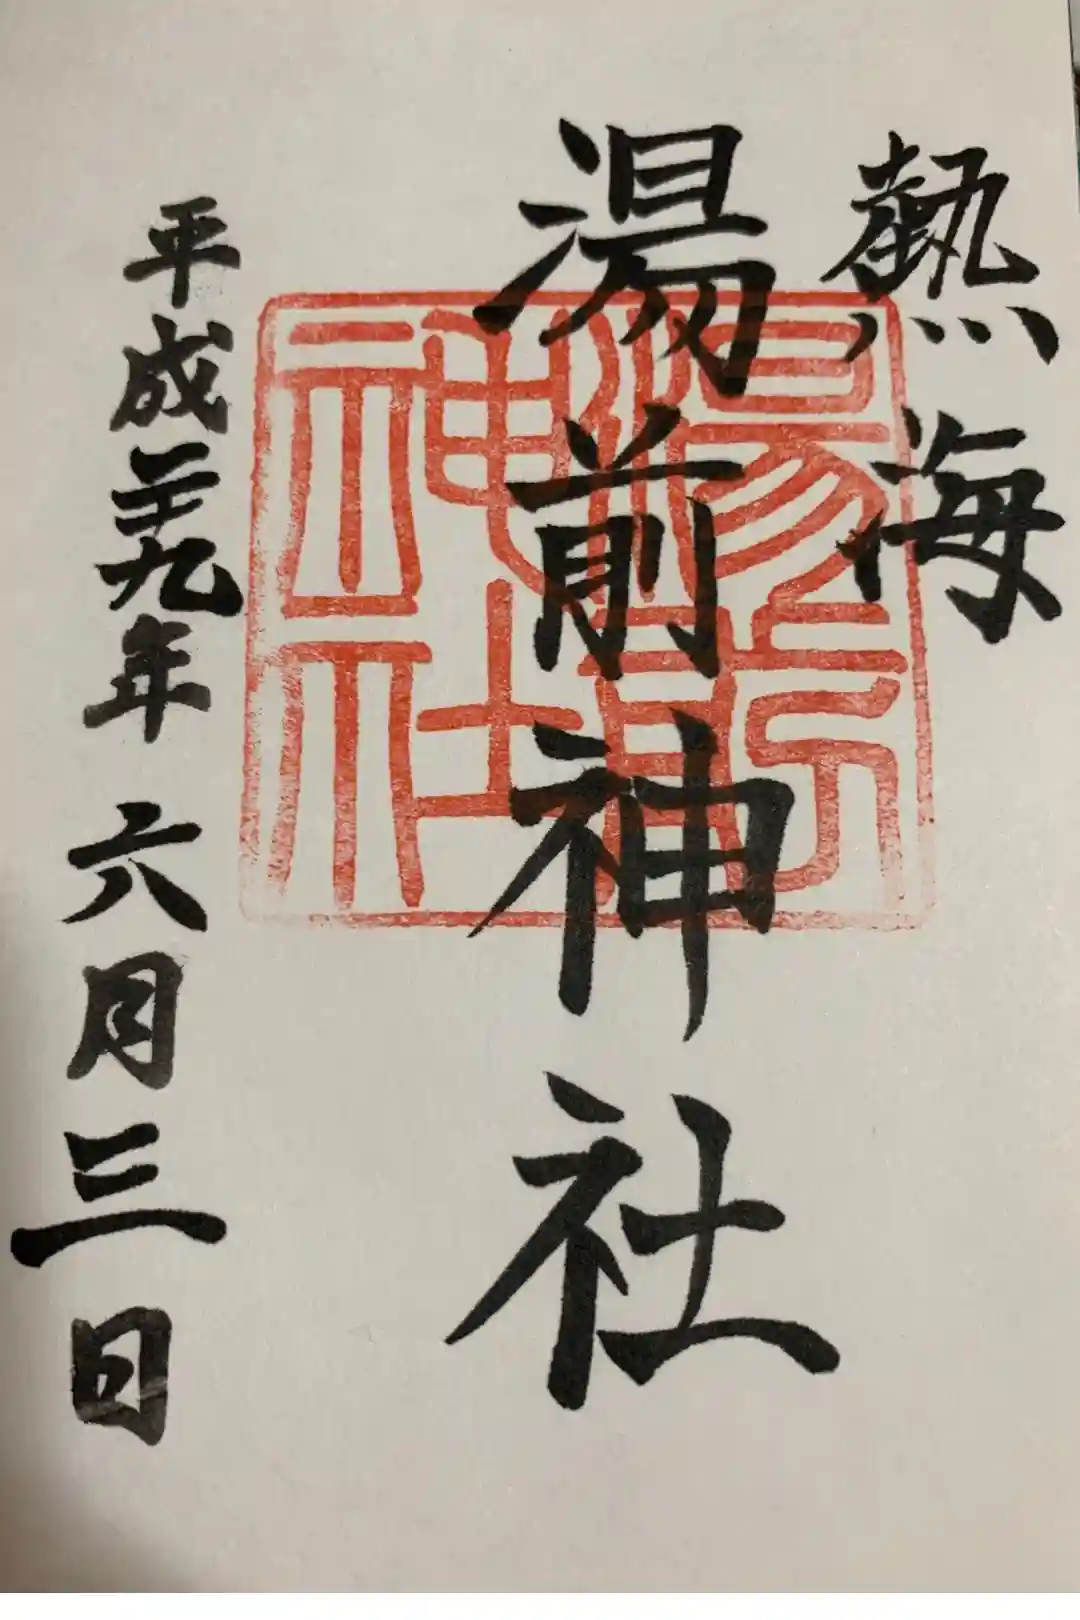 熱海
湯前神社
湯前
神社
平成二十九年六月三日